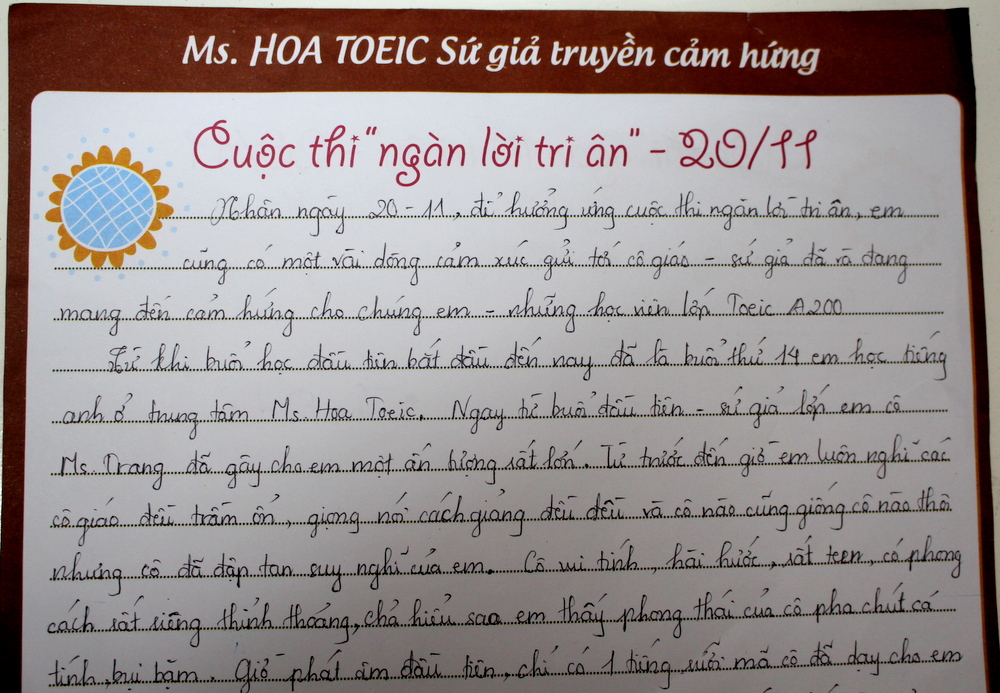 Ms. HOA TOEIC Sứ giả truyền cảm hứng
Cuộc thi "ngàn lời tri ân" - 20/11
Nhân ngày 20-11, để hưởng ứng cuộc thi ngàn lời tri ân, em
cũng có một vài dòng cảm xúc gửi tới cô giáo - sứ giả đã và đang
mang đến cảm hứng cho chúng em - những học viên lớp Toeic A200
Từ khi buổi học đầu tiên bắt đầu đến nay đã là buổi thứ 14 em học tiếng
anh ở trung tâm Ms. Hoa Toeic. Ngay từ buổi đầu tiên - sứ giả lớp em cô
Ms. Trang đã gây cho em một ấn tượng rất lớn. Từ trước đến giờ em luôn nghĩ các
cô giáo đều trầm ổn, giọng nói cách giảng đều đều và cô nào cũng giống cô nào thôi
nhưng cô đã đập tan suy nghĩ của em. Cô vui tính, hài hước, rất teen, có phong
cách rất riêng thỉnh thoảng, chả hiểu sao em thấy phong thái của cô pha chút cá
tính, bụi bặm. Giờ phát âm đầu tiên, chỉ có 1 tiếng rưỡi mà cô đã dạy cho em